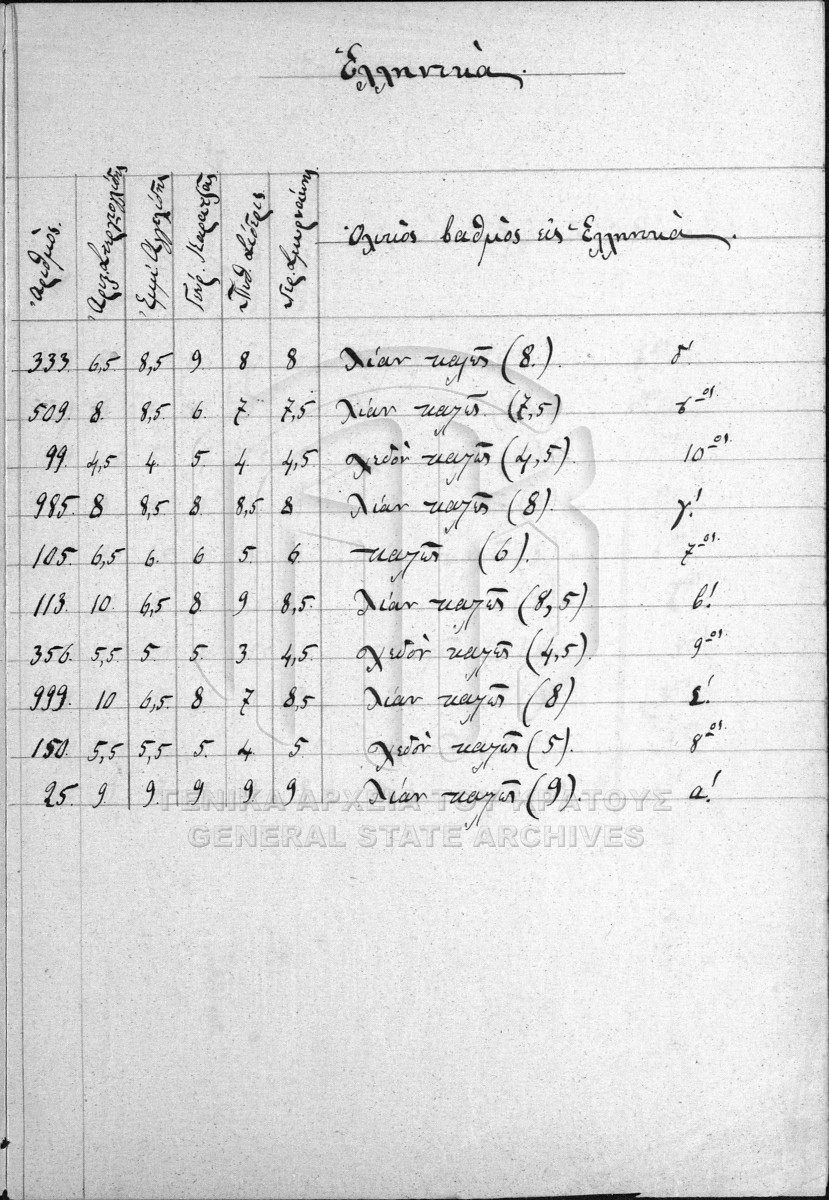 Ἑλληνικὰ.
Ἀριθμὸς. Ἐμμ. Ἀγγελίδης Πυθ. Σίδερις Γερ. Σμυρνάκης Ὁλικὸς βαθμὸς εἰς Ἑλληνικὰ.
333. 6,5 8,5 9 8 8 λίαν καλῶς (8.). δ!
509. 8. 8,5. 6. 7. 7,5 λίαν καλῶς. (7,5) 6-ος.
99. 4,5 4. 5 4 4,5 σχεδὸν καλῶς (4,5). 10-ος.
985. 8 8,5 8. 8,5 8 λίαν καλῶς (8). γ!
105. 6,5 6. 6 5 6. καλῶς (6). 7-ος.
113. 10. 6,5 8. 9 8,5. λίαν καλῶς (8,5) β!
356. 5,5. 5. 5. 3 4,5. σχεδὸν καλῶς (4,5). 9-ος.
999. 10 6,5. 8 7 8,5 λίαν καλῶς (8) ε!
150. 5,5 5,5 5. 4. 5 σχεδὸν καλῶς (5). 8-ος.
25. 9. 9. 9 9. 9 λίαν καλῶς (9). α!
ΓΕΝΙΚΑ ΑΡΧΕΙΑ ΤΟΥ ΚΡΑΤΟΥΣ
GENERAL STATE ARCHIVES